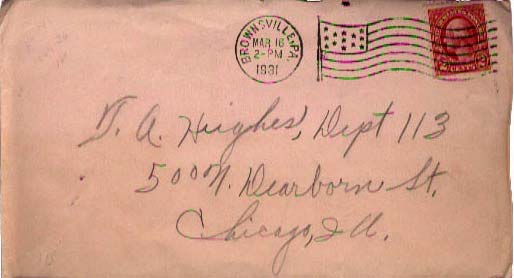 BROWNSVILLE, PA.
MAR 16
2-PM
1931
2 CENTS 2
T. A. Hughes, Dept 113
500 N. Dearborn St.
Chicago, Ill.